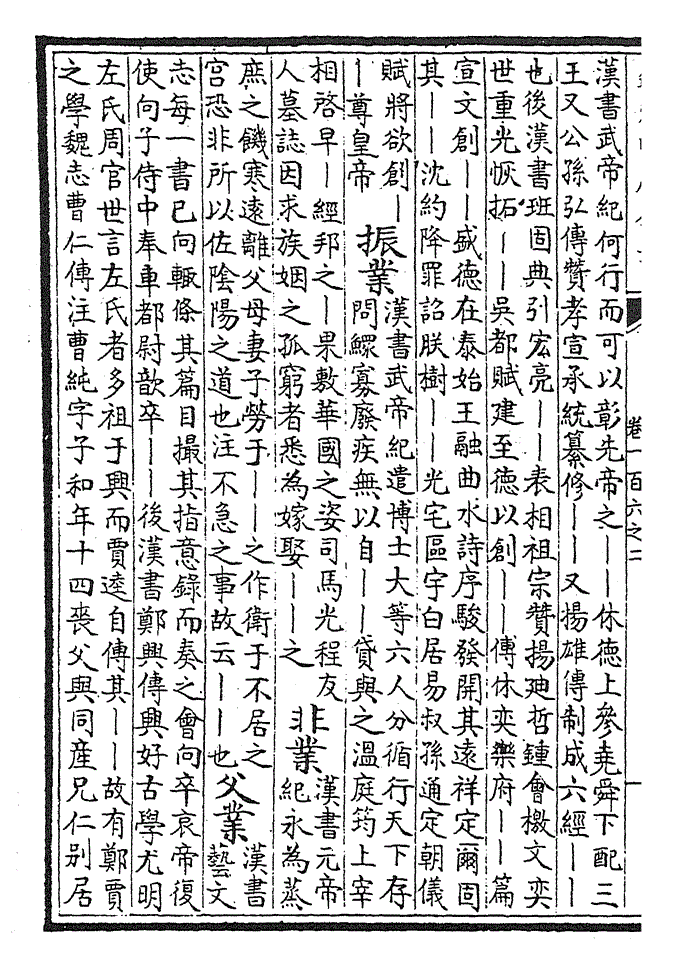 卷一百六之二
漢書武帝紀何行而可以彰先帝之｜｜休德上參堯舜下配三
王又公孫弘傳贊孝宣承統纂修｜｜又揚雄傳制成六經｜｜
也後漢書班固典引宏亮｜｜表相祖宗贊揚廸哲鍾會檄文奕
世重光恢拓｜｜吳都賦建至德以創｜｜傳休奕樂府｜｜篇
宣文創｜｜盛德在泰始王融曲水詩序駿發開其遠祥定爾固
其｜｜沈約降罪詔朕樹｜｜光宅區宇白居易叔孫通定朝儀
賦將欲創｜
｜尊皇帝
振業
漢書武帝紀遣博士大等六人分循行天下存
問鰥寡廢疾無以自｜｜貸與之溫庭筠上宰
相啓早｜經邦之｜果敷華國之姿司馬光程友
人墓誌因求族姻之孤窮者悉為嫁娶｜｜之
非業
漢書元帝
紀永為蒸
庶之饑寒遠離父母妻子勞于｜｜之作衛于不居之
宫恐非所以佐陰陽之道也注不急之事故云｜｜也
父業
漢書
藝文
志每一書已向輙條其篇目撮其指意錄而奏之會向卒哀帝復
使向子侍中奉車都尉歆卒｜｜後漢書鄭興傳興好古學尤明
左氏周官世言左氏者多祖于興而賈逵自傳其｜｜故有鄭賈
之學魏志曹仁傳注曹純字子和年十四喪父與同産兄仁别居